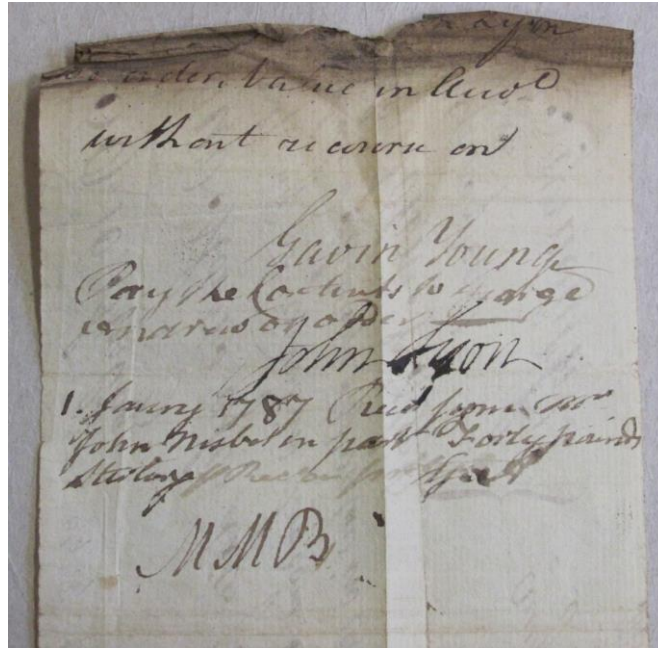 or order, Value in Acco
without recourse on
Gavin Young
Pay the Contents to George
Andrew or order
John Lyon
1. Janry 1787 Recd from Mr
John Nisbet in part Forty pounds
Sterling
MMB